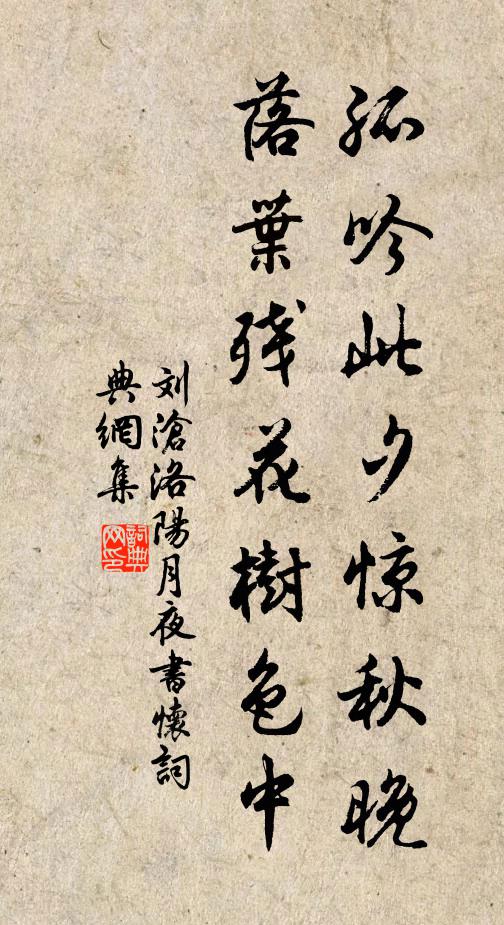 孤吟此夕惊秋晚
落葉残花樹色中
刘滄洛陽月夜書懷詞
典網集
詞典
网印